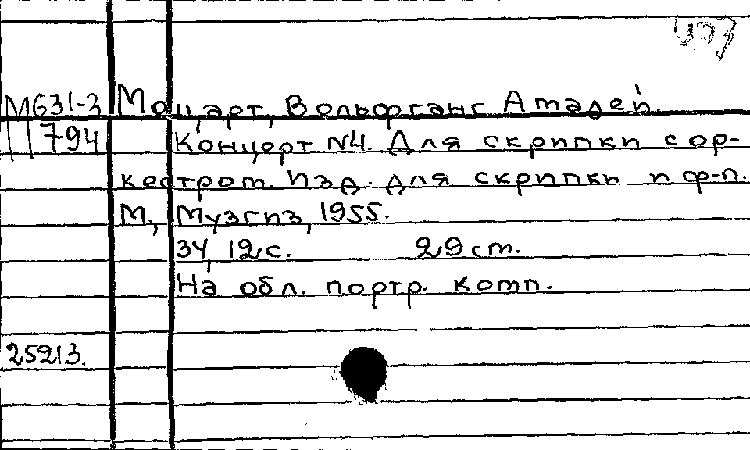 М631-3 Моцарт, Вольфганг Амадей.
П 794 Концерт №4. Для скрипки с ор-
кестром. Изд. для скрипки и ф-п.
М., Музгиз, 1955.
34, 12 с. 29 см.
На обл. портр. комп.
25213.